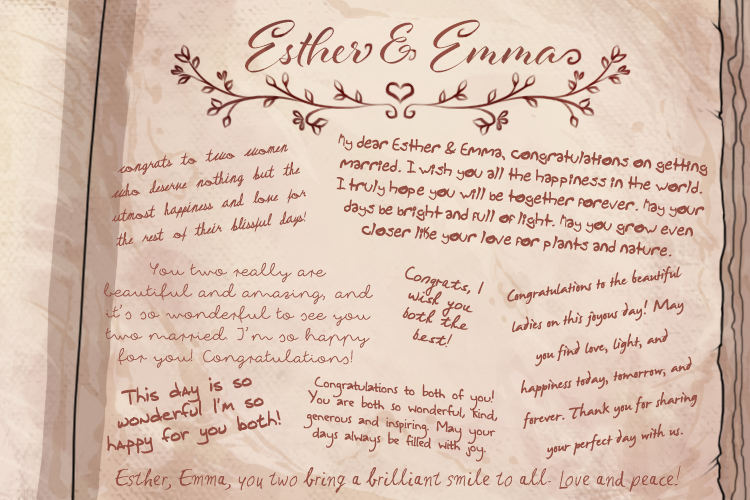 Esther & Emma
congrats to two women
who deserve nothing but the
utmost happiness and love for
the rest of their blissful days!
My dear Esther & Emma, congratulations on getting
married. I wish you all the happiness in the world.
I truly hope you will be together forever. May your
days be bright and full of light. May you grow even
closer like your love for plants and nature.
You two really are
beautiful and amazing, and
it's so wonderful to see you
two married. I'm so happy
for you! Congratulations!
Congrats, I
wish you
both the
best!
Congratulations to the beautiful
ladies on this joyous day! May
you find love, light, and
happiness today, tomorrow, and
forever. Thank you for sharing
your perfect day with us.
This day is so
wonderful I'm so
happy for you both!
Congratulations to both of you!
You are both so wonderful, kind,
generous and inspiring. May your
days always be filled with joy.
Esther, Emma, you two bring a brilliant smile to all. Love and peace!